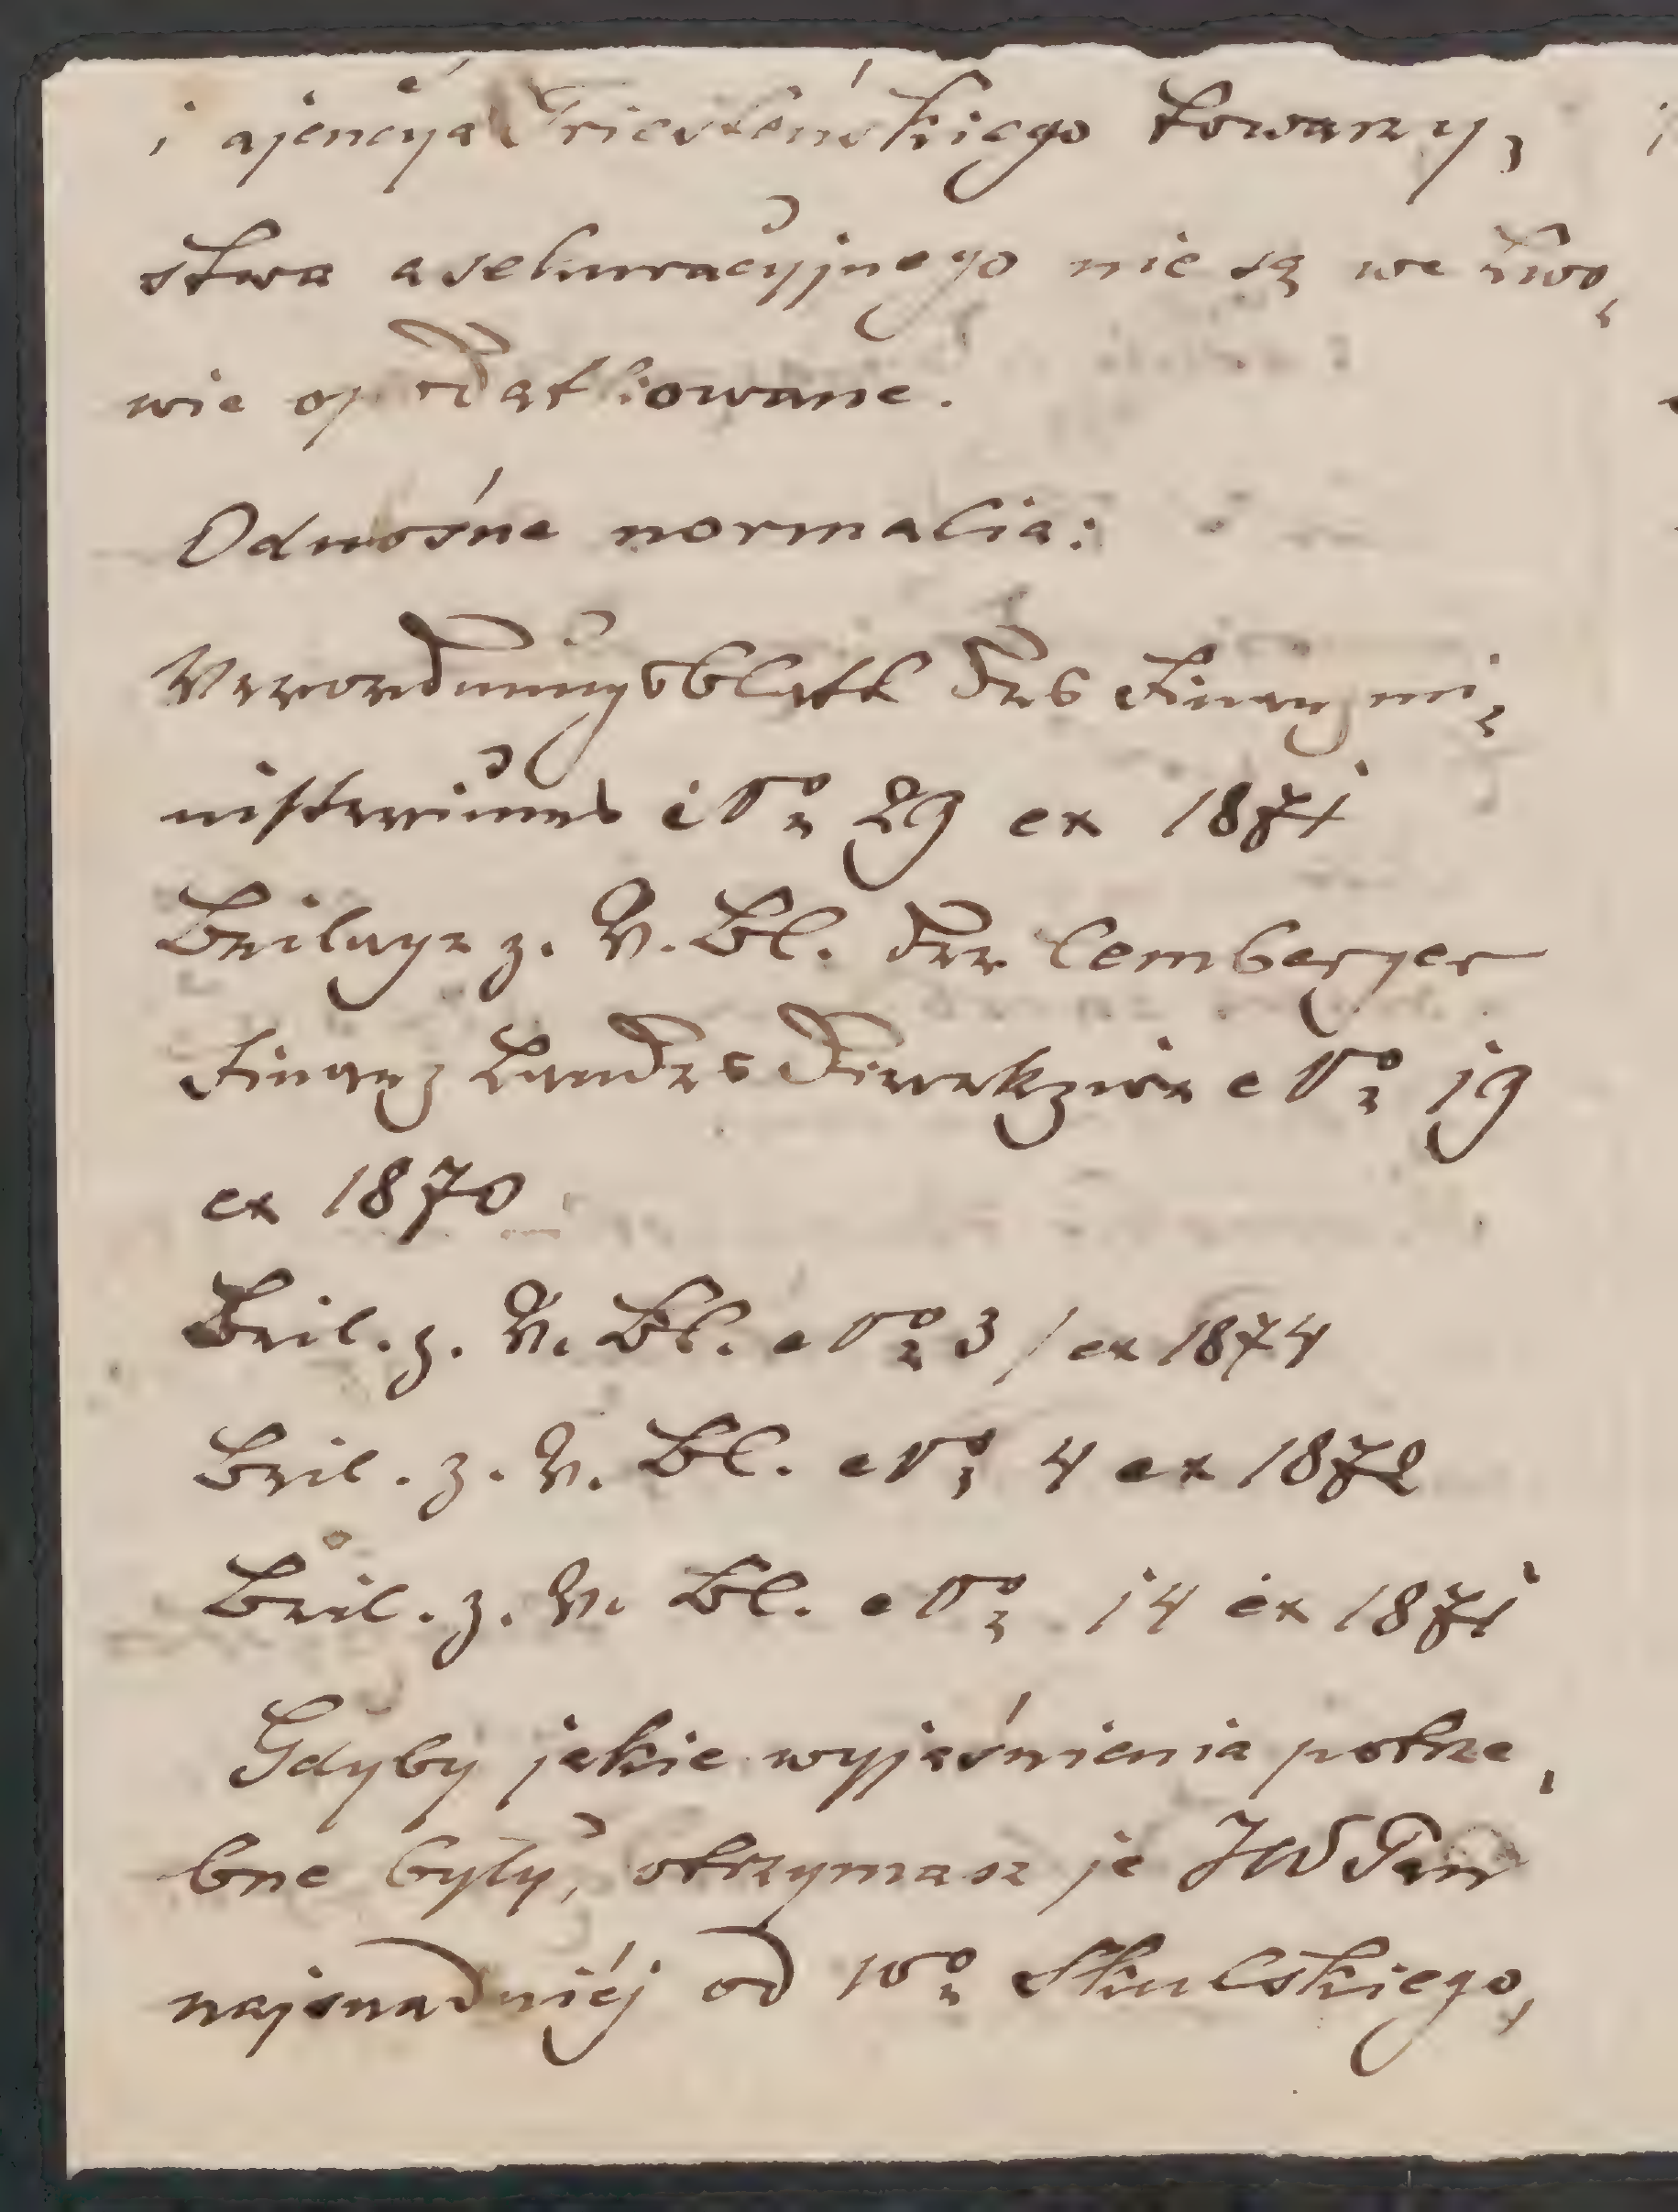 i ajencyja Triesteńskiego towarzy-
stwa asekuracyjnego nie są we Lwo-
wie opodatkowane.
Odnośne normalia:
Verordnungsblatt des Finanzmi-
nisteriums No 29 ex 1871
Beilage z. V. Bl. der Lemberger
Finanz Landes Direkzion No 19
ex 1870
Beil. z. V. Bl. No 31 ex 1874
Beil. z. V. Bl. No 4 ex 1872
Beil. z. V. Bl. No 14 ex 1871
Gdyby jakie wyjaśnienia potrze-
bne były, otrzymasz je JW Pan
najsnadniéj od Wo Skulskiego,